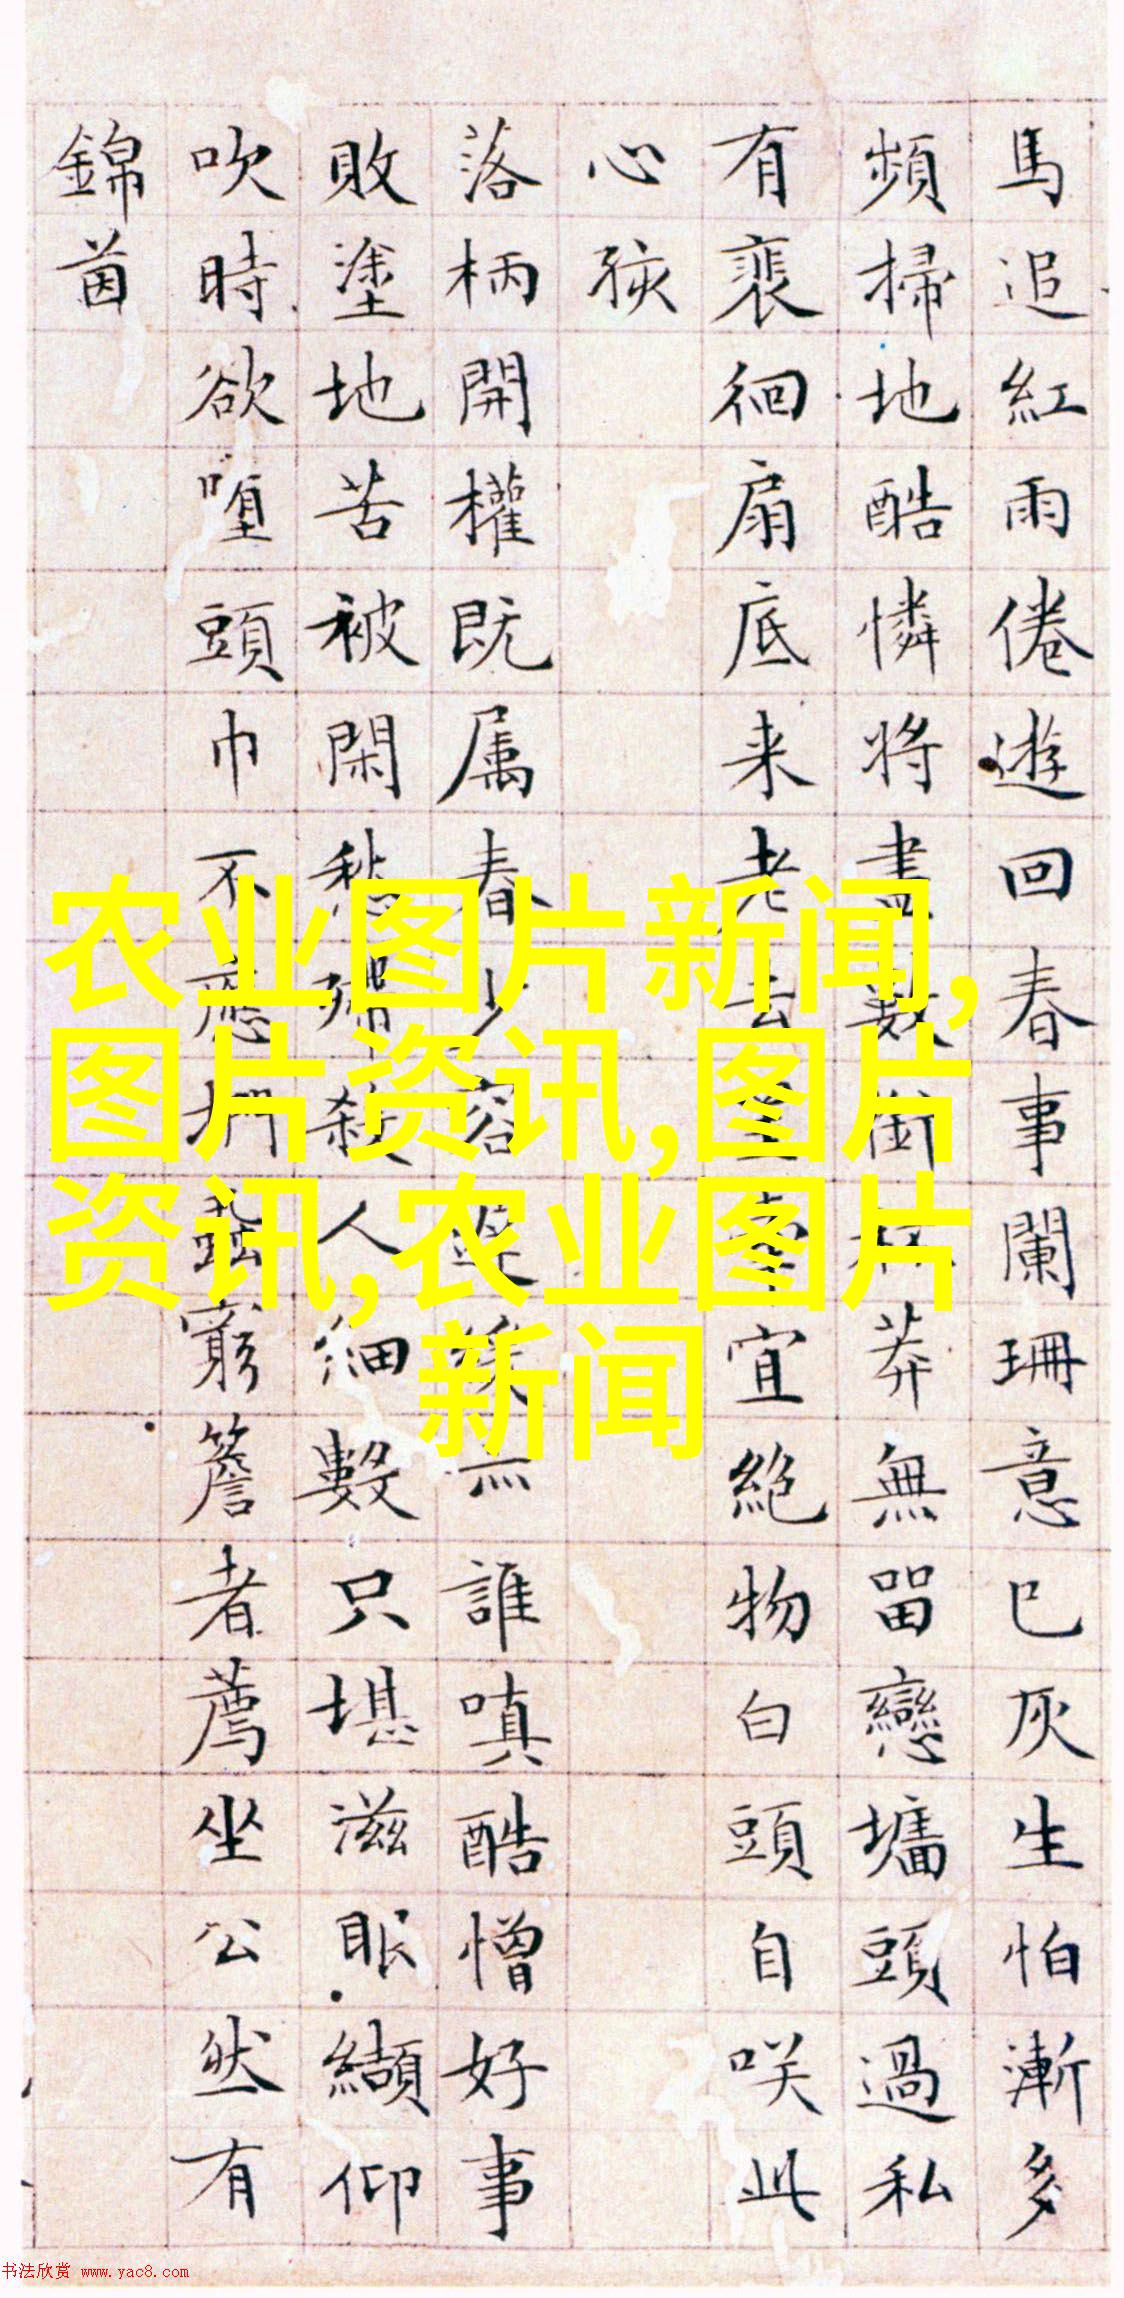 馬追紅雨倦遊回春事闌珊意已灰生怕漸多
頻掃地酷憐將盡數銜杯莽無留戀墻頭過私
有裵徊扇底来老去罣牽宜絕物白頭自咲此
心孩
落柄開權既属春少容遲緩無誰嗔酷憎好事
敗塗地苦被閑愁殢殺人細數只堪滋眼纈仰
吹時欲堕頭巾不應捫蝨窮簷者薦坐公然有
錦茵
农业图片新闻,
图片资讯,图片
资讯,农业图片
新闻
书法欣赏 www.yac8.com